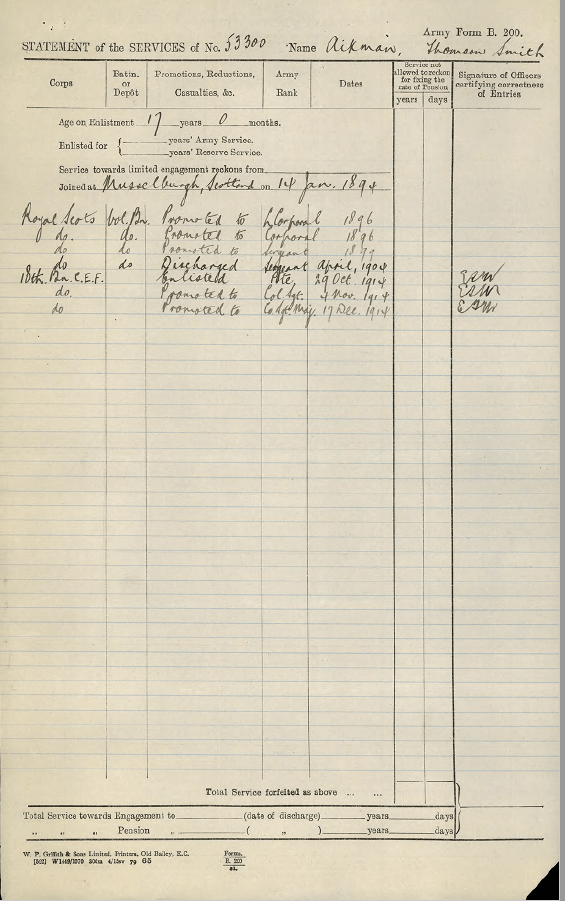 Army Form B. 200.
STATEMENT of the SERVICES of No. 53300 Name Aikman, Thomson Smith
Corps
Batln. or Depôt
Promotions, Reductions, Casualties, &c.
Army Rank
Dates
Service not allowed to reckon for fixing the rate of Pension
years days
Signature of Officers certifying correctness of Entries
Age on Enlistment 17 years 0 months.
Enlisted for
years' Army Service.
years' Reserve Service.
Service towards limited engagement reckons from
Joined at Musselburgh, Scotland on 14 Jan. 1894
Royal Scots Vol. Bn. Promoted to L/Corporal 1896
do. do. Promoted to Corporal 1896
do do Promoted to Sergeant
do do Discharged Sergeant April, 1904
18th. Bn. C.E.F. Enlisted Pte, 29 Oct. 1914
do. Promoted to Col. Sgt. 4 Nov. 1914
do Promoted to Co. Sgt. Maj. 17 Dec. 1914
Total Service forfeited as above ... ...
Total Service towards Engagement to (date of discharge) years days
„ „ „ Pension „ ( „ ) years days
W. P. Griffith & Sons Limited, Printers, Old Bailey, E.C.
Forms. B. 200